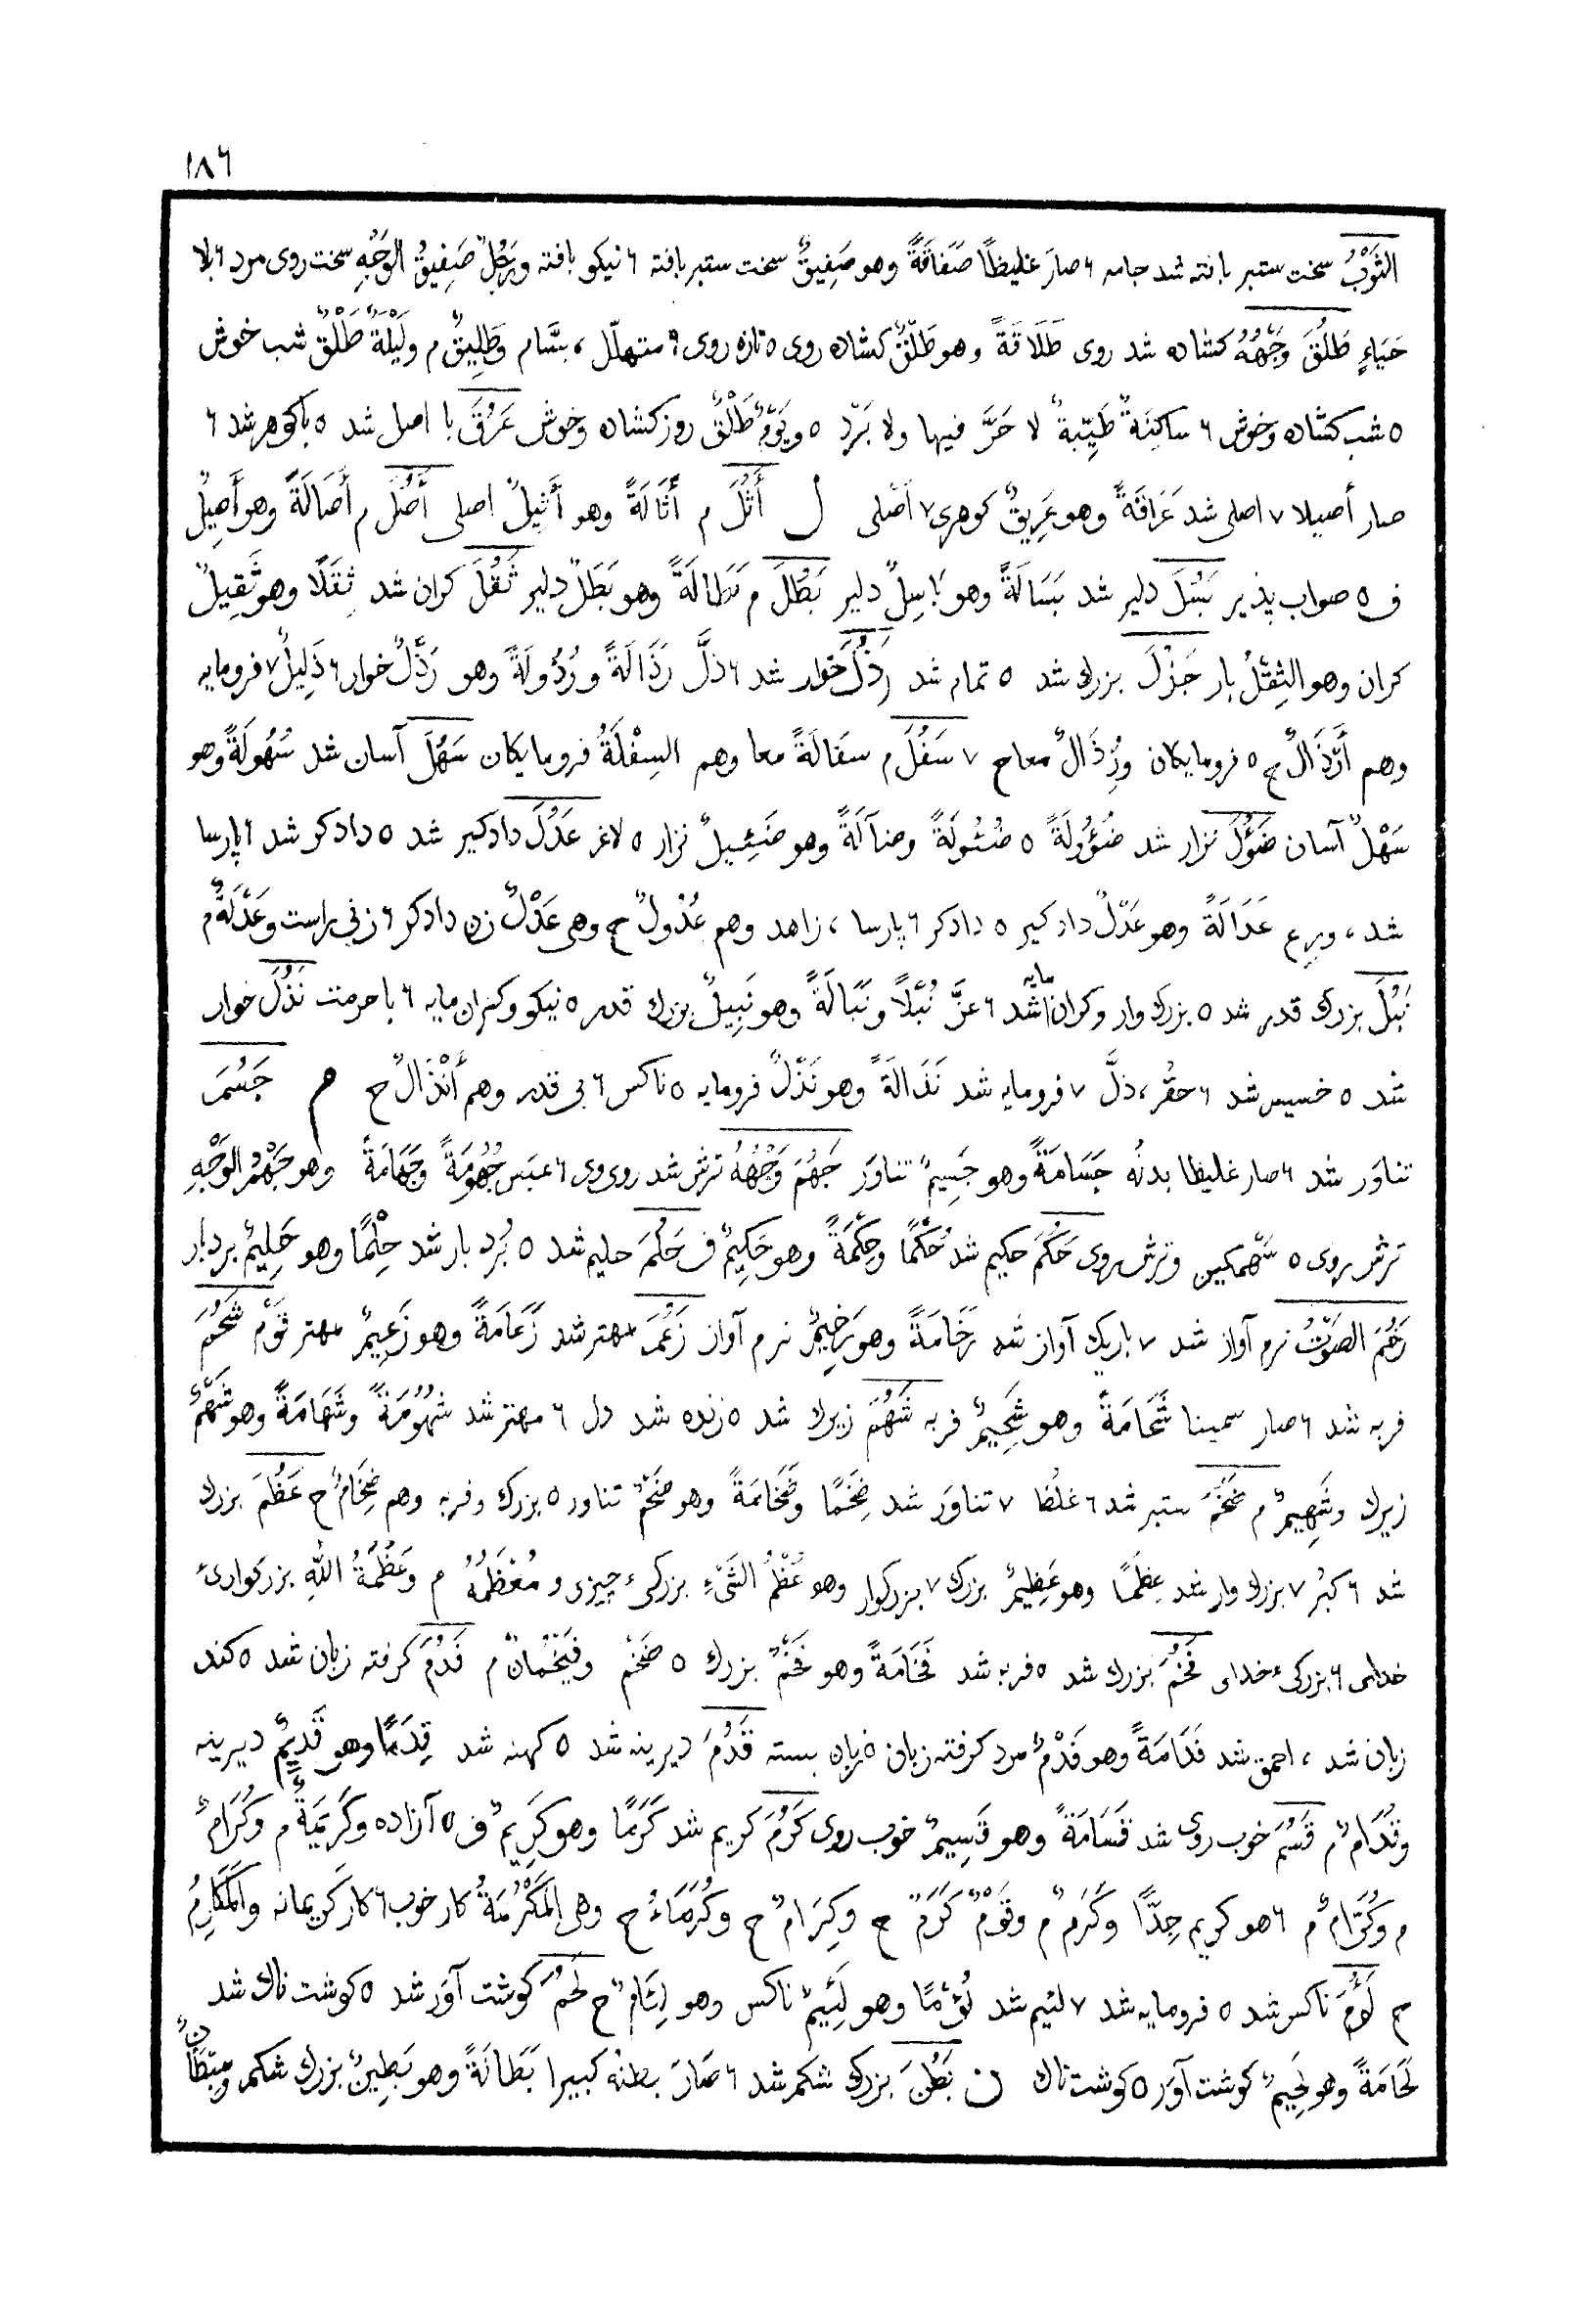 ١٨٦
الثَوْبُ سخت ستبر بافته شد جامه ٦ صارَ غليظًا صَفَاقَةً وهو صَفِيقٌ سخت ستبر بافته ٦ نيكو بافته ورَجُلٌ صَفِيقُ الوَجْهِ سخت روى مرد ٦ بلا
حَيَاءٍ طَلُقَ وَجْهُهُ كشاده شد روى طَلَاقَةً وهو طَلْقٌ كشاده روى ٥ تازه روى ٩ متهلّل ، بسّام وطَلِيقٌ م ولَيْلَةٌ طَلْقٌ شب خوش
٥ شب كشاده وخوش ٦ ساكنَةٌ طَيِّبةٌ لا حَرَّ فيها ولا بَرْد ٥ ويَوْمٌ طَلْقٌ روز كشاده وخوش عَرُقَ با اصل شد ٥ باكوهر شد ٦
صار أصيلا ٧ اصلى شد عَرَاقَةً وهو عَرِيقٌ كوهرى ٧ اَصْلى ل أَثُلَ م أَثَالَةً وهو أَثِيلٌ اصلى أَصُلَ م أَصَالَةً وهو أَصِيلٌ
ف ٥ صواب پذير بَسُلَ دلير شد بَسَالَةً وهو بَاسِلٌ دلير بَطُلَ م بَطَالَةً وهو بَطَلٌ دلير ثَقُلَ كران شد ثِقَلًا وهو ثَقِيلٌ
كران وهو الثِقْلُ بار جَزُلَ بزرك شد ٥ تمام شد رَذُلَ خوار شد ٦ ذلَّ رَذَالَةً ورُذُولَةً وهو رَذْلٌ خوار ٦ ذَلِيلٌ ٧ فرومايه
وهم أَرْذَالٌ ج ٥ فرومايكان ورُذَالٌ معا ج ٧ سَفُلَ م سفَالَةً معا وهم السِفْلَةُ فرومايكان سَهُلَ آسان شد سُهُولَةً وهو
سَهْلٌ آسان ضَؤُلَ نزار شد ضُؤُولَةً ٥ ضُئُولَةً وضآلَةً وهو ضَئِيلٌ نزار ٥ لاغر عَدُلَ دادكير شد ٥ دادكر شد ٦ پارسا
شد ، ورِع عَدَالَةً وهو عَدْلٌ دادكير ٥ دادكر ٦ پارسا ، زاهد وهم عُدُولٌ ج وهى عَدْلٌ زن دادكر ٦ زنى راست وعَدْلَةٌ م
نَبُلَ بزرك قدر شد ٥ بزرك وار وكران مايه شد ٦ عزَّ نُبْلًا ونَبَالَةً وهو نَبِيلٌ بزرك قدر ٥ نيكو وكران مايه ٦ با حرمت نَذُلَ خوار
شد ٥ خسيس شد ٦ حقُر ، ذلَّ ٧ فرومايه شد نَذَالَةً وهو نَذْلٌ فرومايه ٥ ناكس ٦ بى قدر وهم أَنْذَالٌ ج م جَسُمَ
تناوَر شد ٦ صار غليظا بدنُه جَسَامَةً وهو جَسِيمٌ تناوَر جَهُمَ وَجْهُهُ ترش شد روى وى ٦ عبَس جُهُومَةً وجَهَامَةً وهو جَهْمُ الوَجْهِ
ترش روى ٥ سَهمكين وترش روى حَكُمَ حكيم شد حُكْمًا وحِكْمَةً وهو حَكِيمٌ ف حَلُمَ حليم شد ٥ بُرد بار شد حِلْمًا وهو حَلِيمٌ بردبار
رَخُمَ الصَوْتُ نرم آواز شد ٧ باريك آواز شد رَخَامَةً وهو رَخِيمٌ نرم آواز زَعُمَ مهتر شد زَعَامَةً وهو زَعِيمٌ مهتر قَوْم شَحُمَ
فربه شد ٦ صار سمينا شَحَامَةً وهو شَحِيمٌ فربه شَهُمَ زيرك شد ٥ زنده شد دل ٦ مهتر شد شُهُومَةً وشَهَامَةً وهو شَهْمٌ
زيرك وشَهِيمٌ م ضَخُمَ ستبر شد ٦ غلُظ ٧ تناوَر شد ضِخَمًا وضَخَامَةً وهو ضَخْمٌ تناور ٥ بزرك وفربه وهم ضِخَامٌ ج عَظُمَ بزرك
شد ٦ كبُر ٧ بزرك وار شد عِظَمًا وهو عَظِيمٌ بزرك ٧ بزركوار وهو عُظْمُ الشَىْءِ بزركىء چيزى ومُعْظَمُهُ م وعَظَمَةُ اللهِ بزركوارىء
خداى ٦ بزركىء خداى فَخُمَ بزرك شد ٥ فربه شد فَخَامَةً وهو فَخْمٌ بزرك ٥ ضَخْم وفَيْخُمانٌ م فَدُمَ كرفته زبان شد ٥ كند
زبان شد ، احمق شد فَدَامَةً وهو فَدْمٌ مرد كرفته زبان ٥ زبان بسته قَدُمَ ديرينه شد ٥ كهنه شد قِدَمًا وهو قَدِيمٌ ديرينه
وقُدَامٌ م قَسُمَ خوب روى شد قَسَامَةً وهو قَسِيمٌ خوب روى كَرُمَ كريم شد كَرَمًا وهو كَرِيمٌ ف ٥ آزاده وكَرِيمَةٌ م وكُرَامٌ
م وكُرَّامٌ م ٦ هو كريم جِدًّا وكَرَمٌ م وقَوْمٌ كَرَمٌ ج وكِرَامٌ ج وكُرَمَاءُ ج وهى المَكْرُمَةُ كار خوب ٦ كار كريمانه والمَكَارِمُ
ج لَؤُمَ ناكس شد ٥ فرومايه شد ٧ لئيم شد لُؤْمًا وهو لَئِيمٌ ناكس وهو لِئَامٌ ج لَحُمَ كوشت آوَر شد ٥ كوشت ناك شد
لَحَامَةً وهو لَحِيمٌ كوشت آوَر ٥ كوشت ناك ن بَطُنَ بزرك شكم شد ٦ صَارَ بطنُه كبيرا بَطَانَةً وهو بَطِينٌ بزرك شكم ومِبْطَانٌ